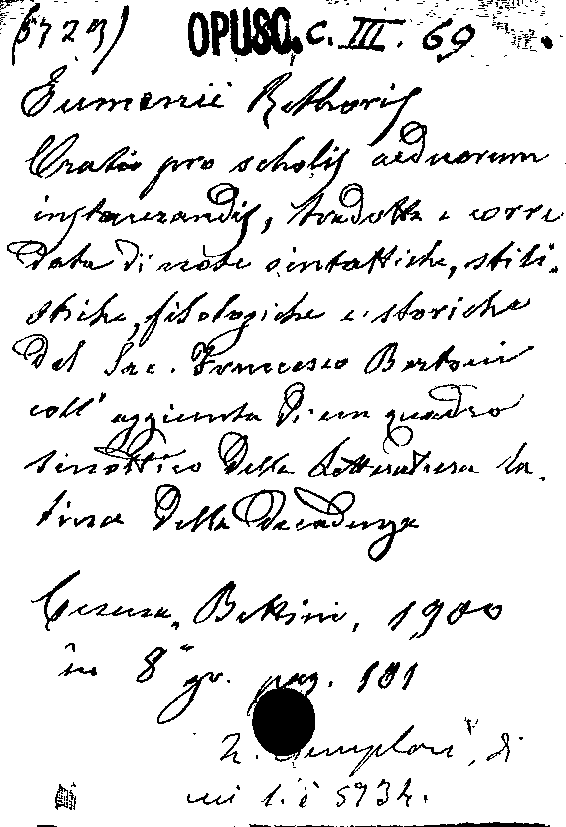 (5723) OPUSC. C. III. 69
Eumenii Rethoris
Oratio pro scholis aeduorum
instaurandis, tradotta e corre
data di note sintattiche, stili-
stiche, filologiche e storiche
dal Sac. Francesco Bertoni
coll' aggiunta di un quadro
sinottico della Letteratura la-
tina della Decadenza
Cesena, Bettini, 1900
in 8° gr. pag. 181
2. esemplari, di
cui 1. è 5734.